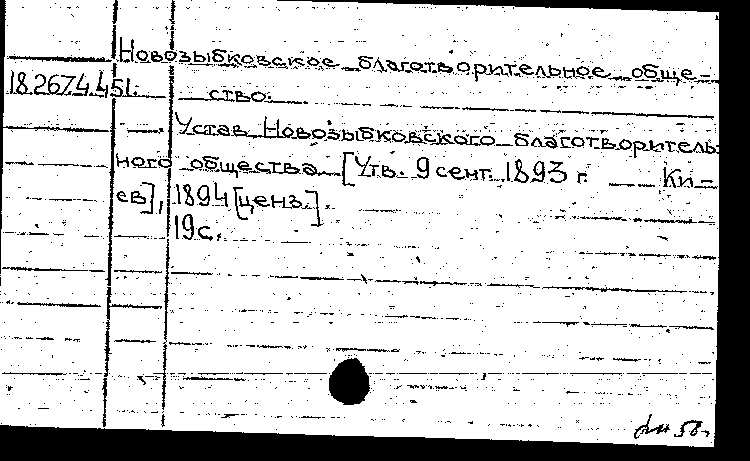 Новозыбковское благотворительное обще-
18.267.4.451. ство.
Устав Новозыбковского благотворитель-
ного общества. [Утв. 9 сент. 1893 г. Ки-
ев], 1894 [ценз.].
19с.